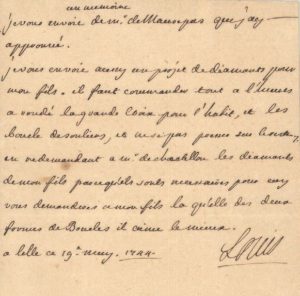 un memoire
je vous envoie de mr de Maurepas que j'ay
approuvé.
je vous envoie aussy un projet de diamants pour
mon fils. il faut commander tout a l'heure
a rondé la grande Croix pour l'habit, et les
boucle de souliers, et ne pas penser
en redemandant a mr de chastillon les diamants
de mon fils parcequ'ils sont necessaires pour cecy
vous demanderez a mon fils laquelle des deux
formes de Boucles il aime le mieux.
a lille ce 19e may. 1744.
Louis